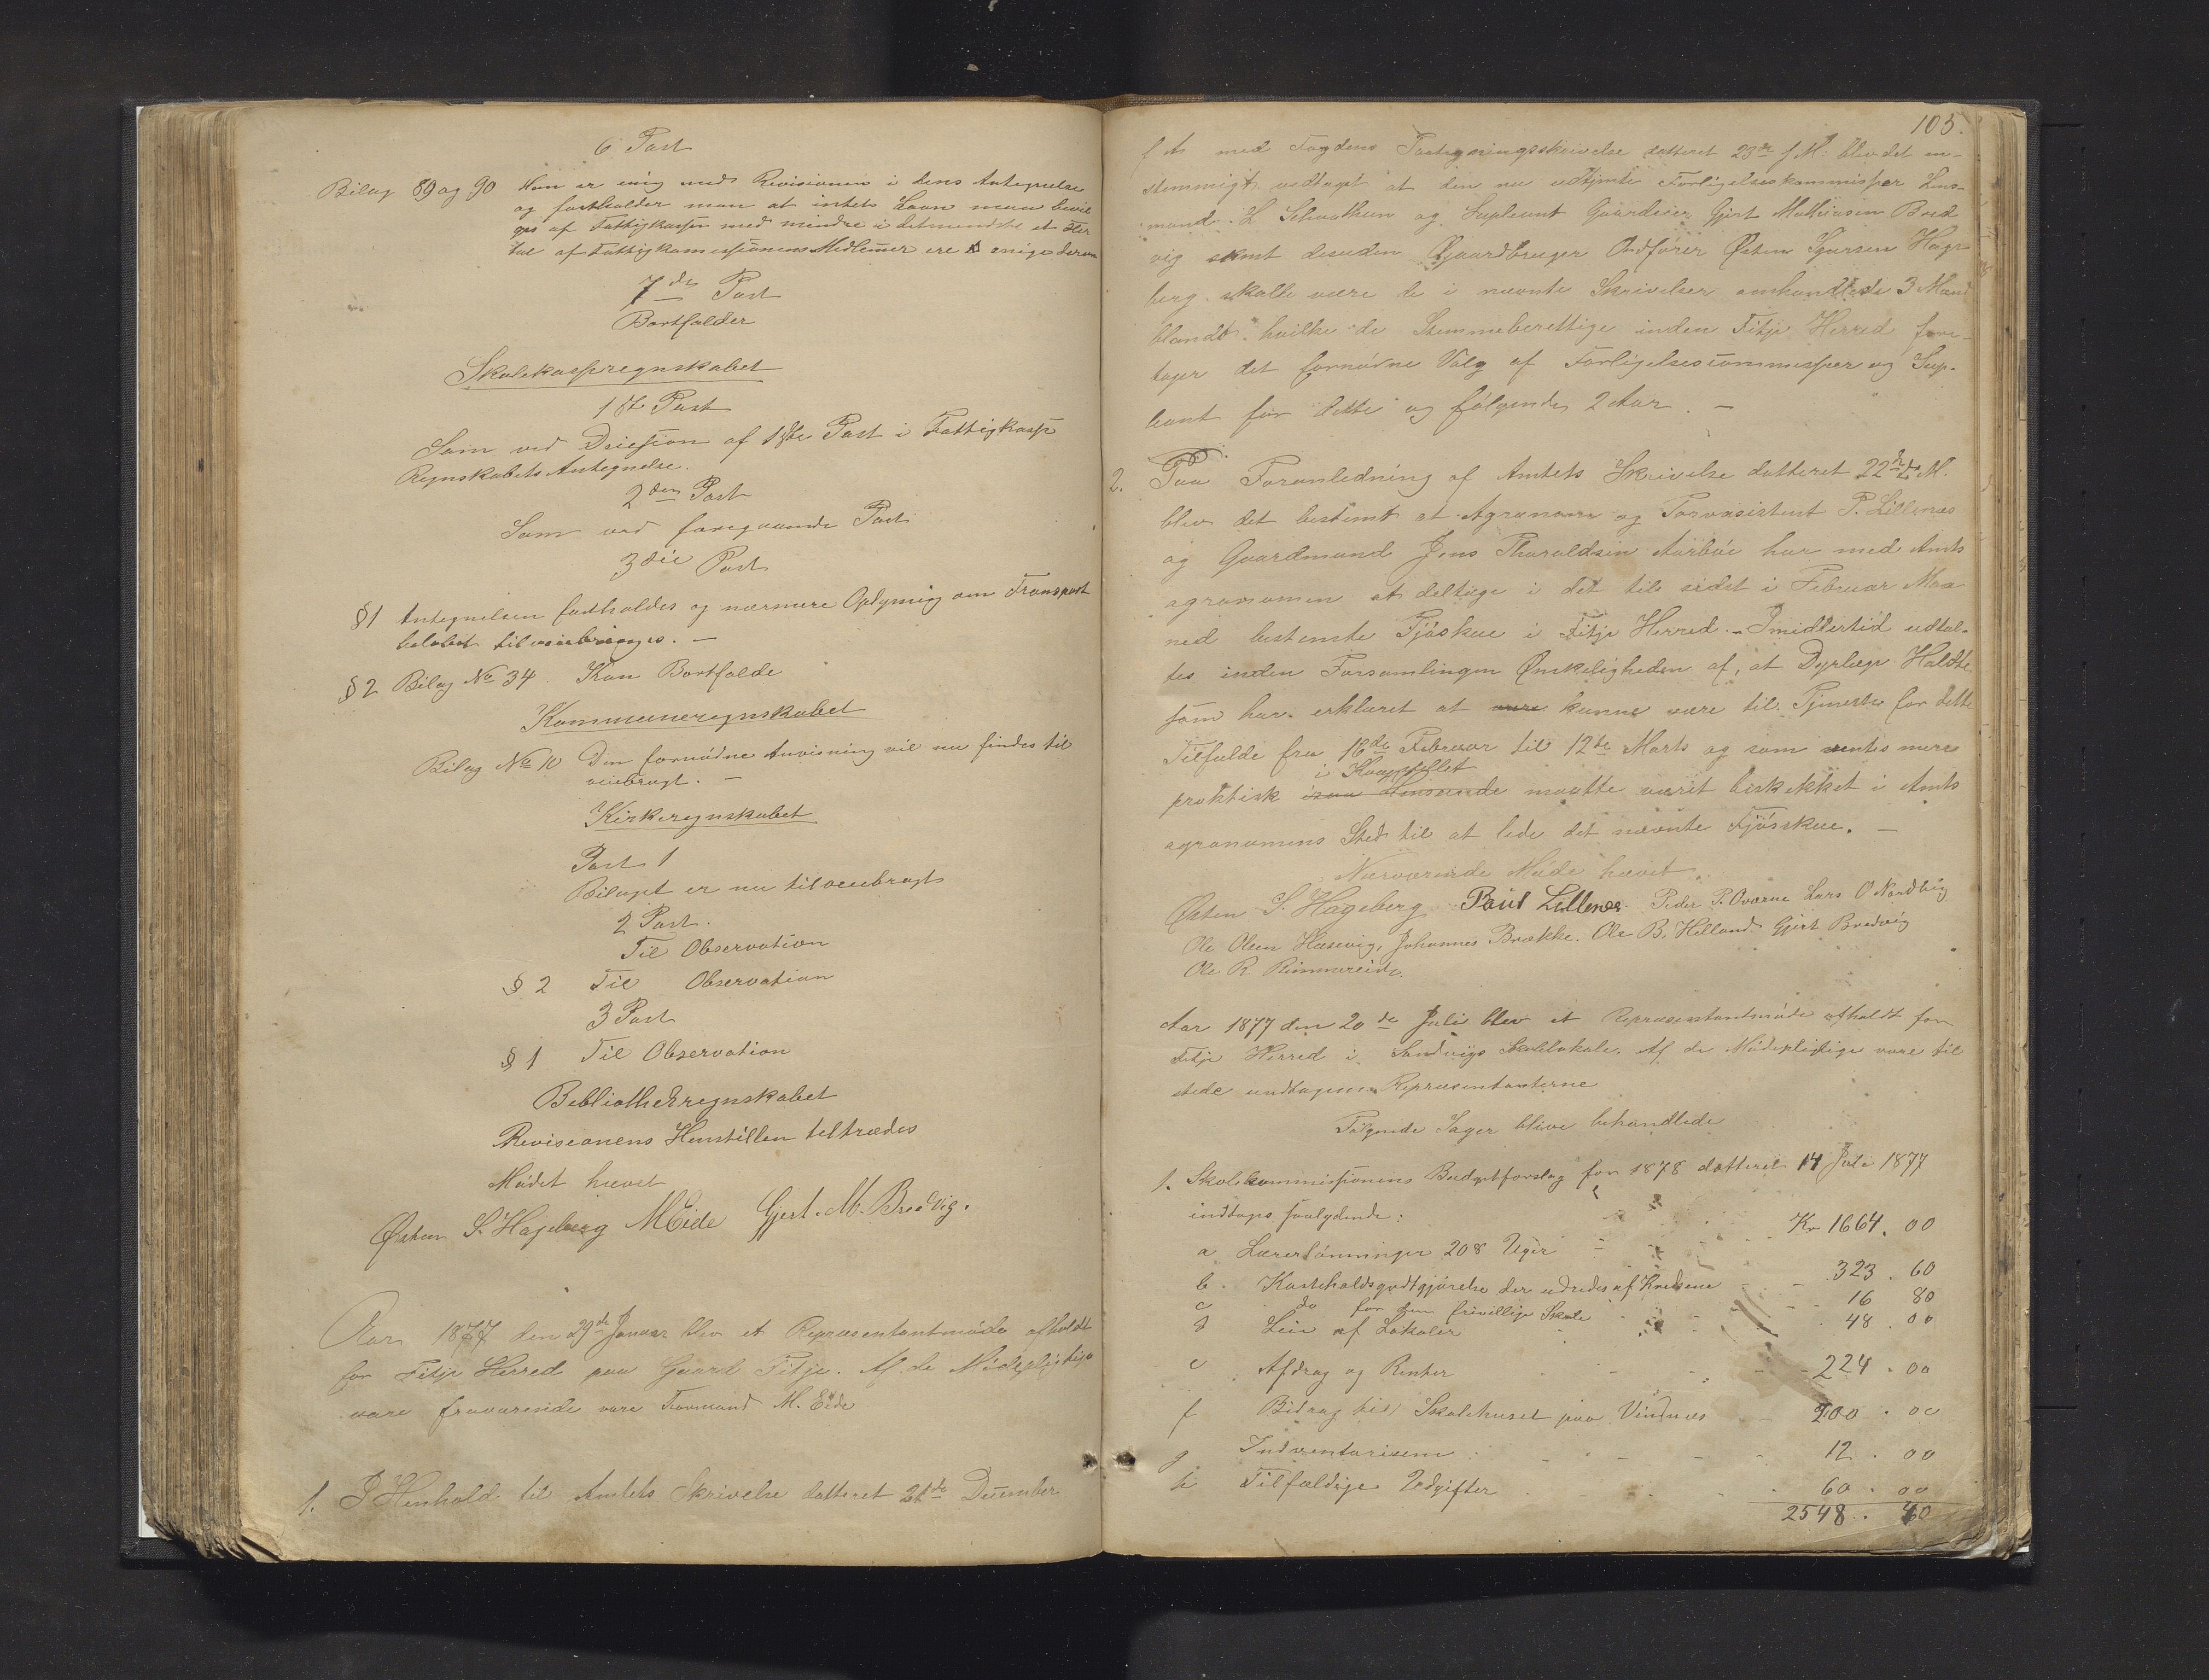 6 Post
Bilag 89 og 90 Man er enig med Revisionen i dens Antegnelse
og fastholder man at intet Laan maa bevil
ges af Fattigkassen med mindre i det mindste et Fler
tal af Fattigkomissionens Medlemer ere enige derom
7de Post
Bortfalder
Skolekasseregnskabet
1ste Post
Som ved Desission af 1ste Post i Fattigkasse
Regnskabets Antegnelse.
2den Post
Som ved foregaaende Post
3die Post
§1 Antegnelsen fastholdes og nærmere Oplysning om Transport
beløbet tilveiebringes. —
§2 Bilag No 34. Kan Bortfalde
Kommuneregnskabet
Bilag No 10 Den fornødne Anvisning vil nu findes til
veiebragt. —
Kirkeregnskabet
Post 1
Bilaget er nu tilveiebragt
2 Post.
Til Observation
§ 2 Til Observation
3 Post
§ 1 Til Observation
Bibliothekregnskabet
Revisionens Henstillen tiltrædes
Mødet hævet
Østen S. Hageberg MEide Gjert. M. Bredvig.
Aar 1877 den 29de Januar blev et Repræsentantmøde afholdt
for Fitje Herred paa Gaard Fitje. Af de Mødepligtige
vare fraværende vare Formand M. Eide
1. I Henhold til Amtets Skrivelse datteret 21de December
105.
f. A. med Fogdens Paategningsskrivelse datteret 23de f. M. blev det en-
stemmigt vedtaget at den nu udtjente Forligelseskommissær Lens-
mand L. Schaathun og Supleant Gaardeier Gjert Mathiasen Bred
vig samt desuden Gaardbruger Ordfører Østen Sjursen Hage
berg skulle være de i nævnte Skrivelser omhandlede 3 Mænd
blandt hvilke de Stemmeberettige inden Fitje Herred fore-
tager det fornødne Valg af Forligelsescommissær og Sup-
leant for dette og følgende 2 Aar. —
2. Paa Foranledning af Amtets Skrivelse datteret 22de d. M.
blev det bestemt at Agronom og Forvasistent P. Lillenæs
og Gaardmand Jens Tharaldsen Aarbøe har med Amts
agronomen at deltage i det til sidst i Februar Maa
ned bestemte Fjøskue i Fitje Herred. - Imidlertid udtal-
tes inden Forsamlingen Ønskeligheden af, at Dyrlæge Holdte
som har erklæret at være kunne være til Tjeneste for dette
Tilfælde fra 16de Februar til 12te Marts og som ventes mere
i Kvægstellet
praktisk i saa Henseende maatte været beskikket i Amts
agronomens Sted til at lede det nævnte Fjøsskue. —
Nærværende Møde hævet.
Østen S. Hageberg Paul Lillenæs. Peder P. Oværne Lars O Nordbøg
Ole Olsen Husevig, Johannes Brække. Ole B. Helland Gjert Bredvig
Ole R Rimmereide.
Aar 1877 den 20de Juli blev et Repræsentantmøde afholdt for
Fitje Herred i Sandvigs Skolelokale. Af de Mødepligtige vare til
stede undtagen Repræsentanterne
Følgende Sager bleve behandlede
1. Skolekommissionens Budgetforslag for 1878 datteret 14 Juli 1877
indtages saalydende:
a Lærerlønninger 208 Uger Kr 1664. 00
b. Kostholdsgodtgjørelse der udredes af Kredsene 323. 60
c do for den frivillige Skole 16 80
d Leie af Lokaler 48. 00
e Afdrag og Renter 224. 00
f Bidrag til Skolehuset paa Vindnæs 200. 00
g Indventarisem 12. 00
h Tilfældige Udgifter 60. 00
2548. 40